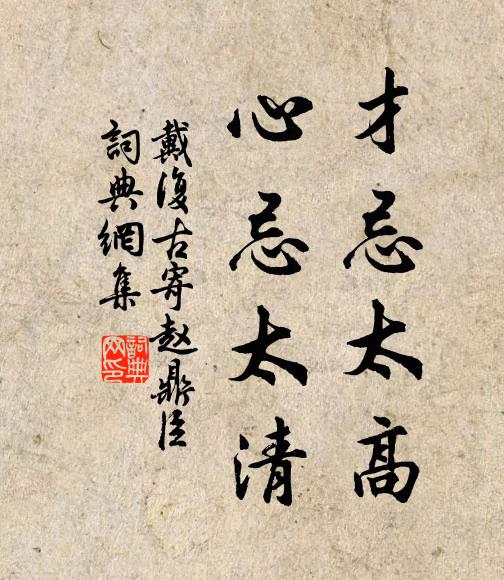 才忌太高
心忌太清
戴復古寄赵鼎臣
詞典網集
詞典网印